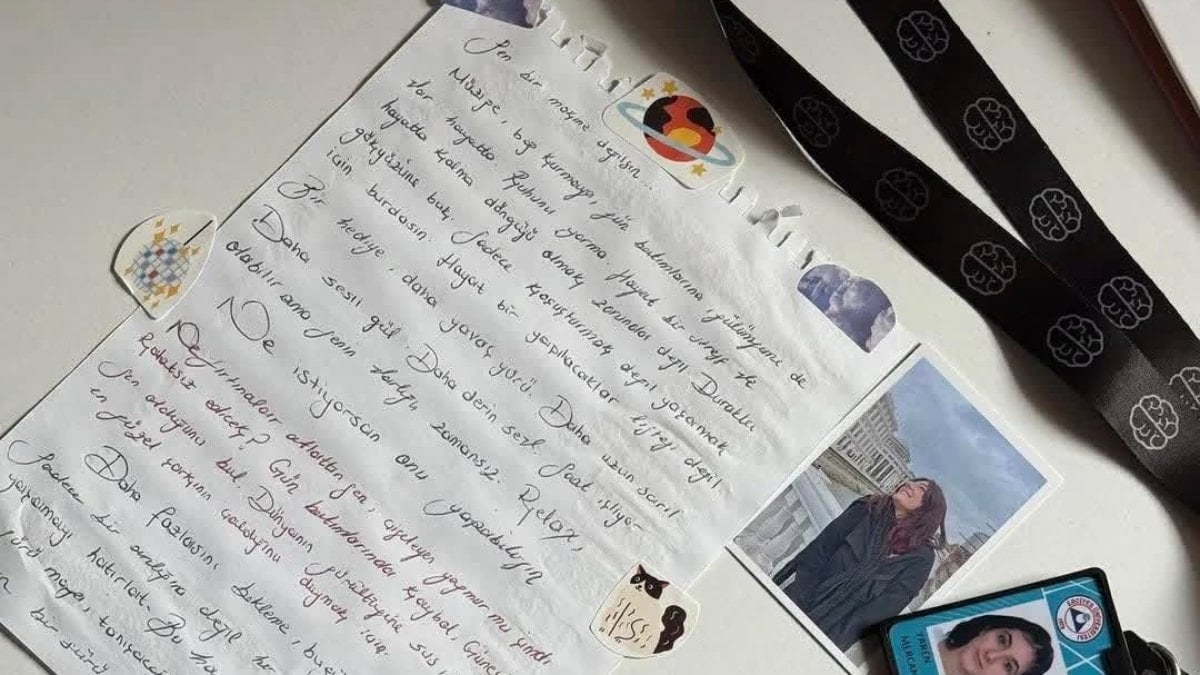 Sen bir makine değilsin..
Müziğe, bağ kurmaya, gün batımlarına gülümseme de
var hayatta Ruhunu yorma. Hayat bir
hayatta kalma döngüsü olmak zorunda değil Duraklu
gökyüzüne bak. Sadece koşuşturmak değil yaşamak
için burdasın. Hayat bir yapılacaklar listesi değil.
Bir hediye, daha yavaş yürü. Daha uzun sarıl
Daha sesli gül. Daha derin sev. Saat işliyo-
olabilir ama senin varlığın zamansız. Relax,
Ne istiyorsan onu yapabilirsin
fırtınalar atlattın sen, çiseleyen yağmur mu şimdi
Rahatsız edicek? Gün batımlarında kaybol, Güne
Sen olduğunu bul Dünyanın gürültüsüne sus,
en güzel şarkının olduğunu duymak için.
Daha fazlasını bekleme,
Sadece bir değil her
hatırlat. Bu
yürümeye,
bir
ERCİYES ÜNİVERSİTESİ
YAREN
MERCAN